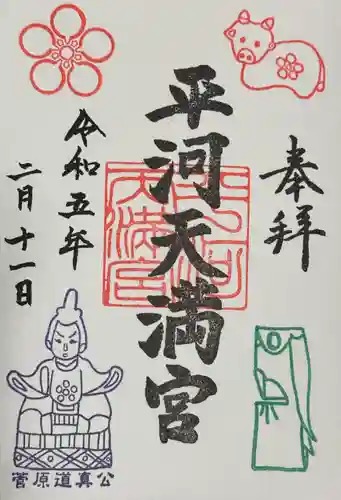 奉拝
平河天満宮
令和五年
二月十一日
平河
天満宮
菅原道真公